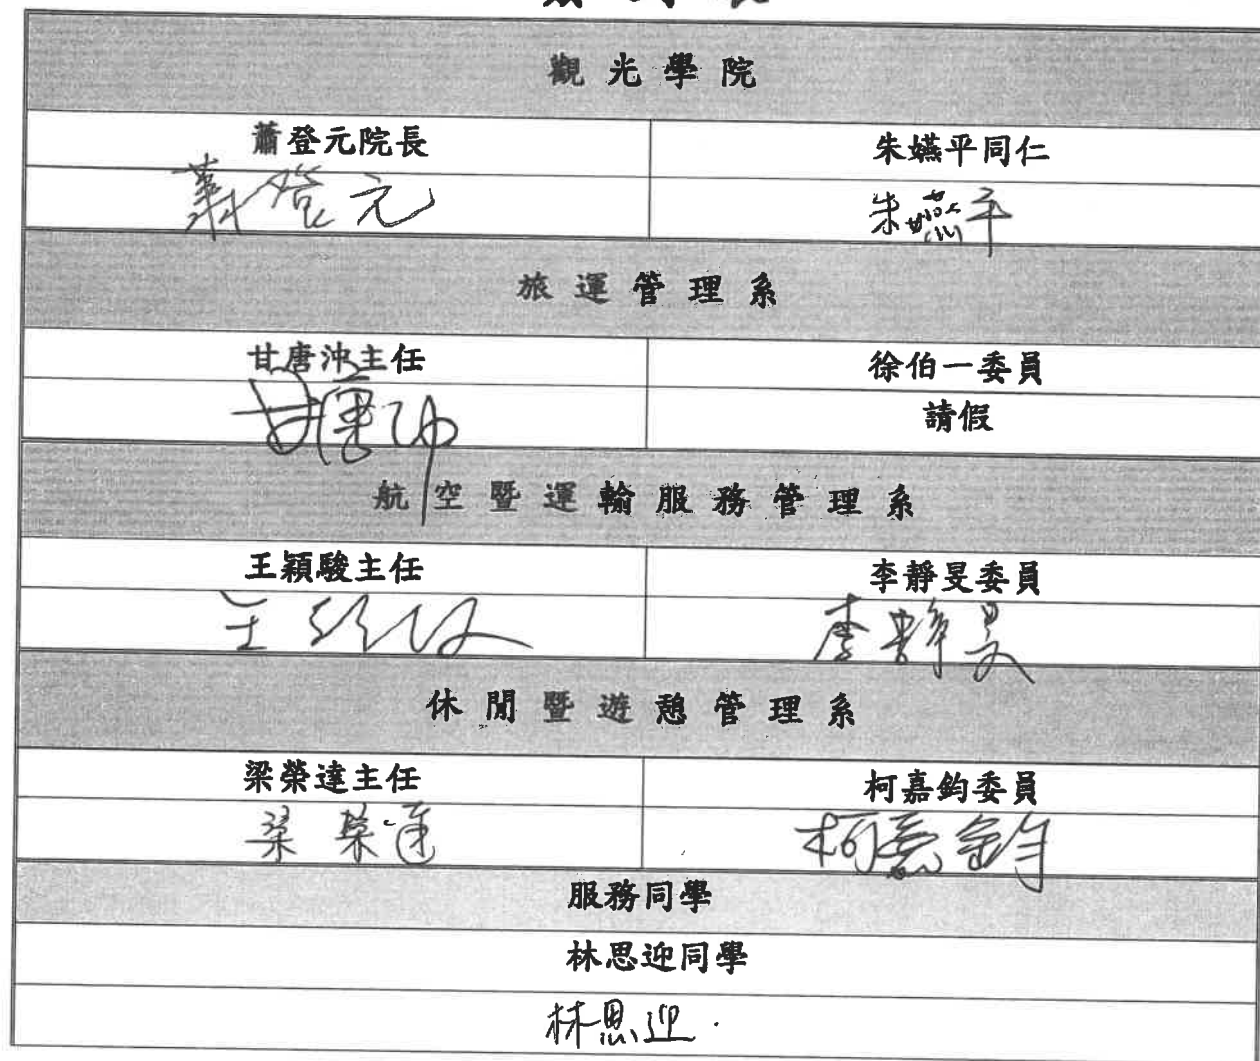 觀光學院
蕭登元院長 朱嬿平同仁
蕭登元 朱嬿平
旅運管理系
甘唐沖主任 徐伯一委員
甘唐沖 請假
航空暨運輸服務管理系
王穎駿主任 李靜旻委員
王穎駿 李靜旻
休閒暨遊憩管理系
梁榮達主任 柯嘉鈞委員
梁榮達 柯嘉鈞
服務同學
林思迎同學
林思迎